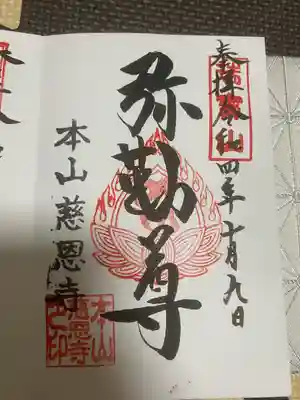 奉拝 令和四年十月九日
弥勒尊
本山慈恩寺
本山
慈恩寺
之印